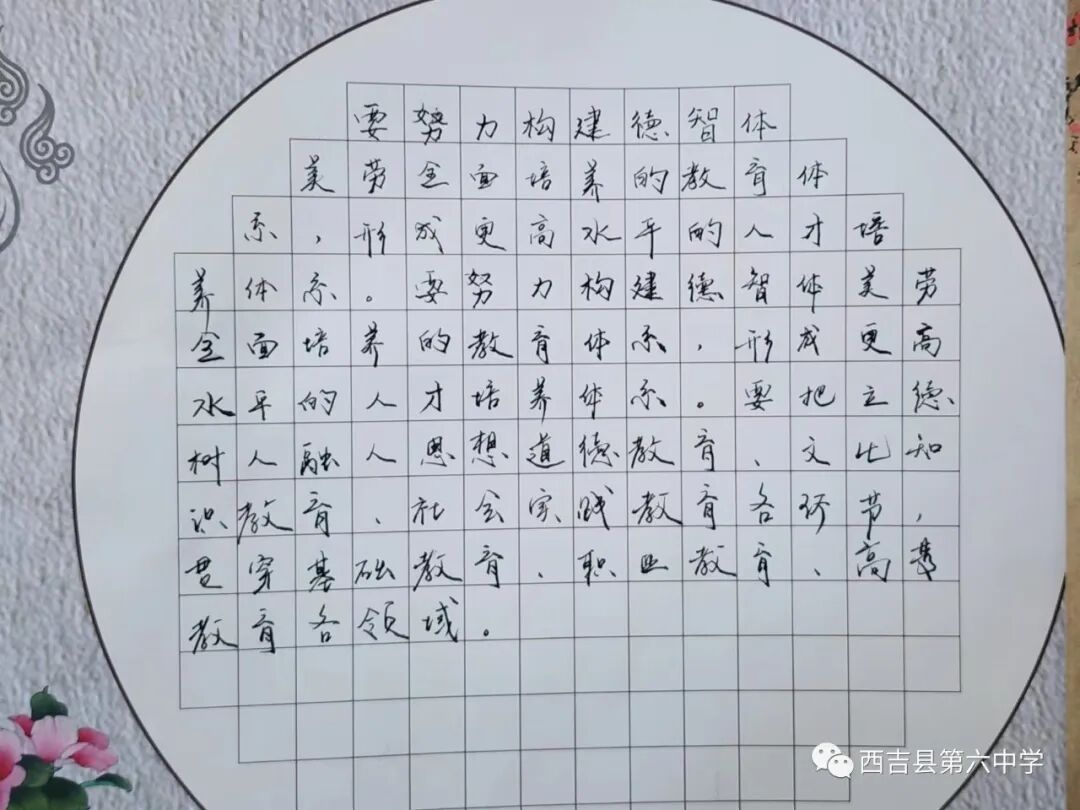 要努力构建德智体
美劳全面培养的教育体
系，形成更高水平的人才培
养体系。要努力构建德智体美劳
全面培养的教育体系，形成更高
水平的人才培养体系。要把立德
树人融人思想道德教育、文化知
识教育、社会实践教育各环节，
贯穿基础教育、职业教育、高等
教育各领域。
西吉县第六中学